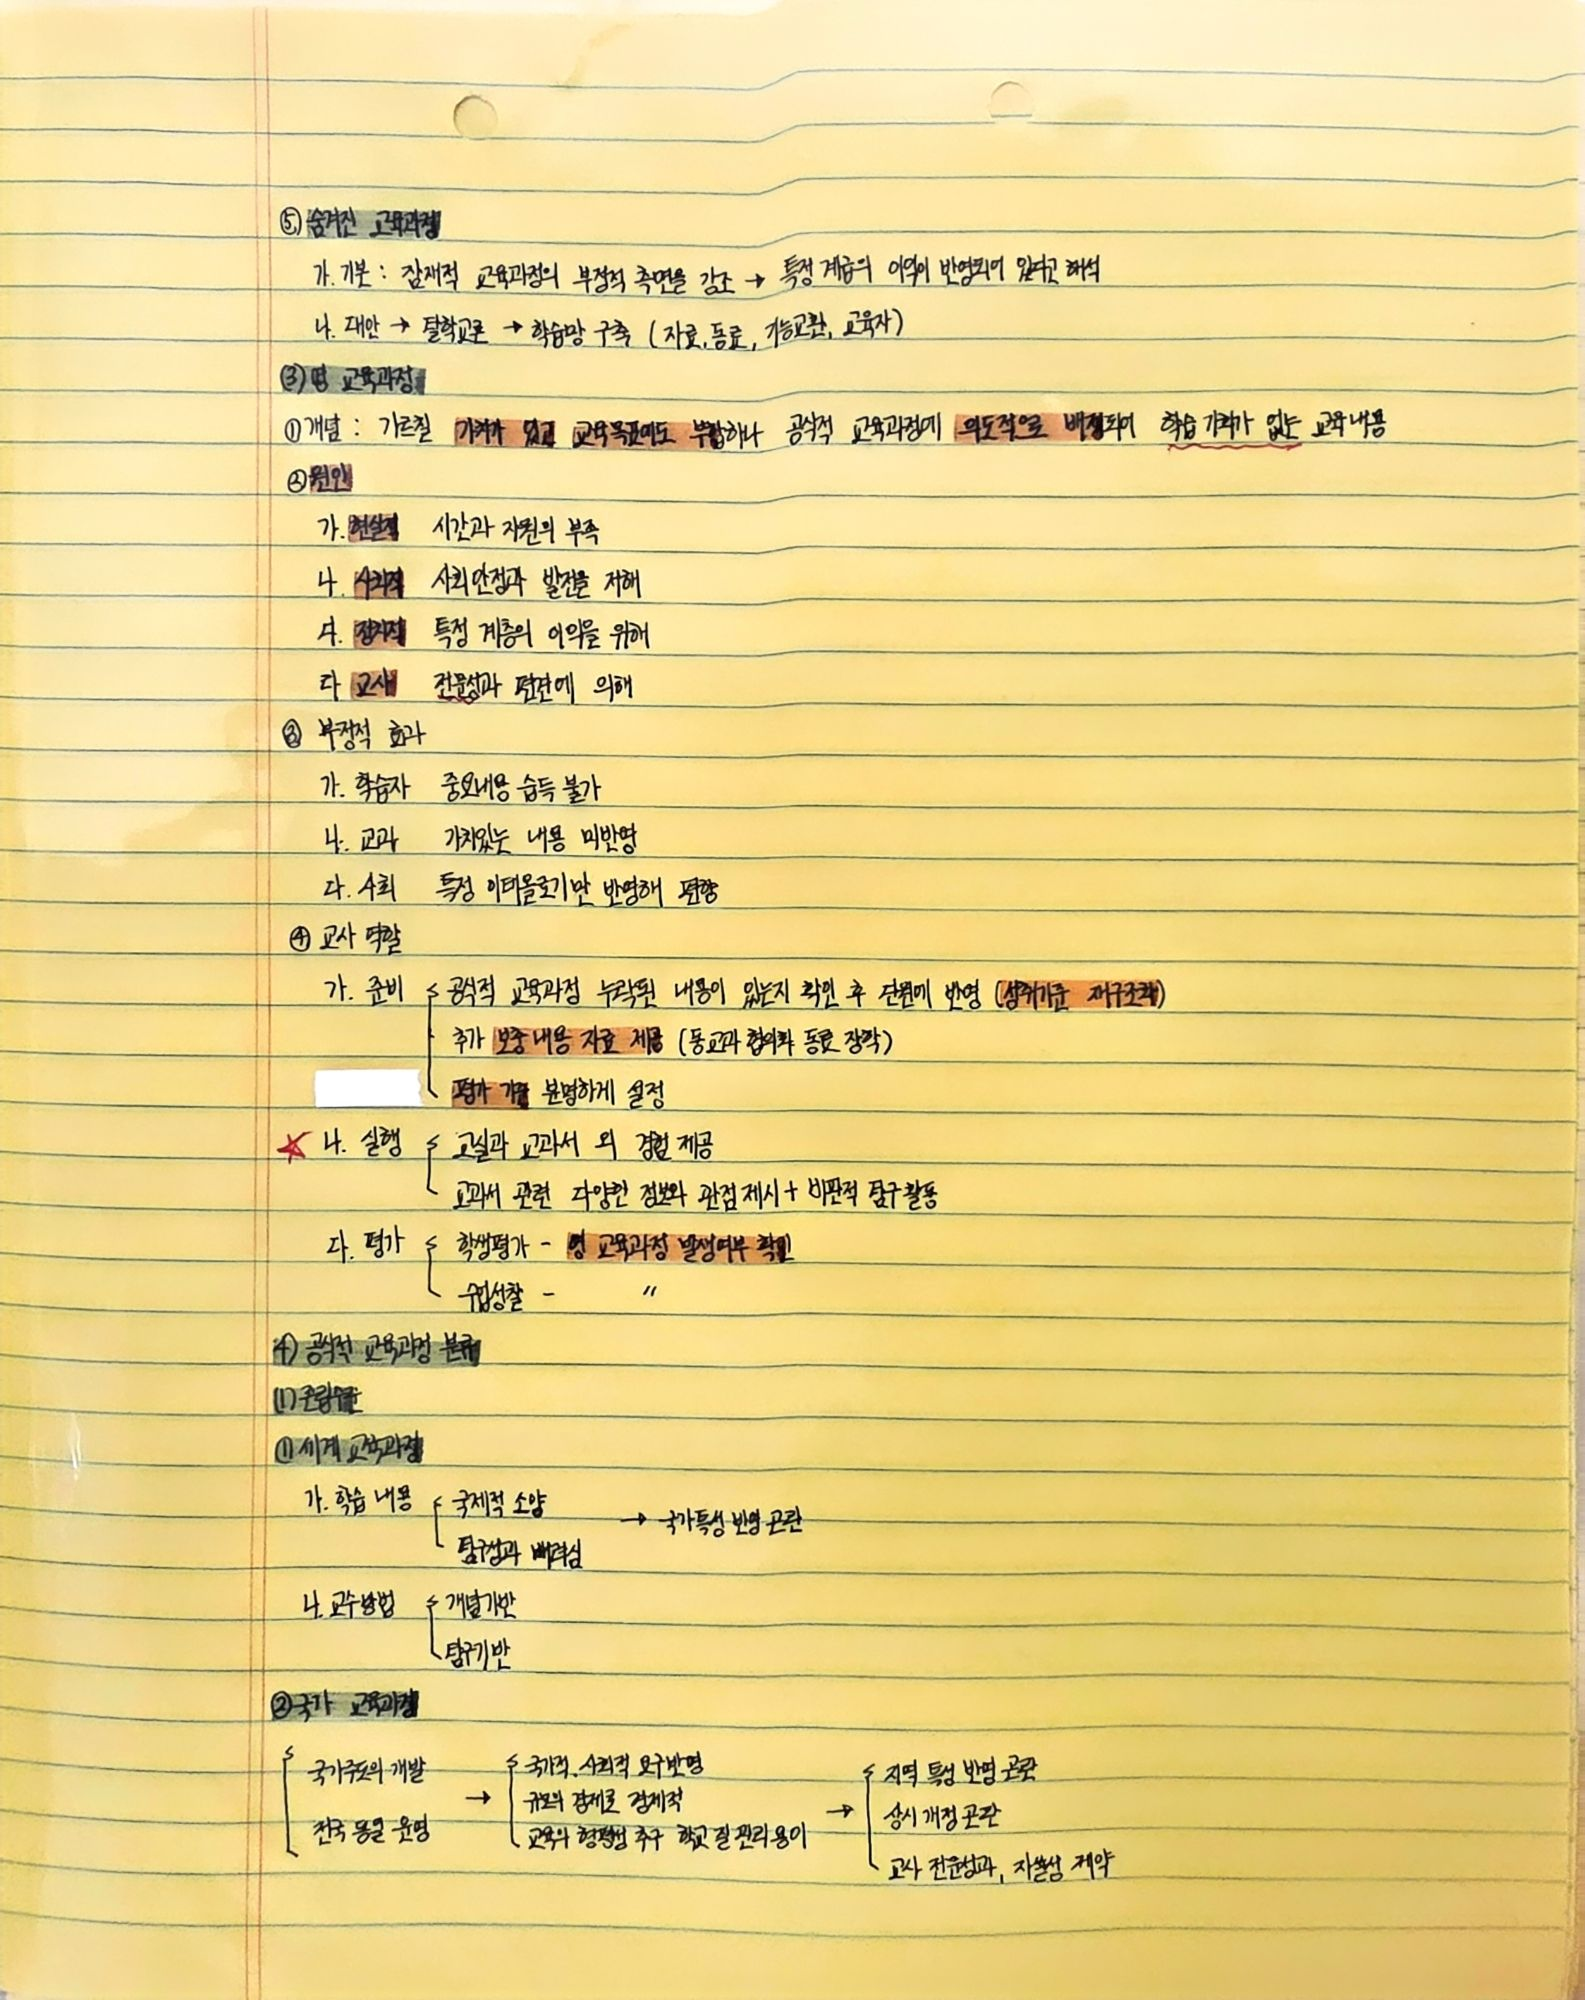 ⑤ 숨겨진 교육과정
가. 기본 : 잠재적 교육과정의 부정적 측면을 강조 → 특정 계급의 이익이 반영되어 있다고 해석
나. 대안 → 탈학교론 → 학습망 구축 (자료, 동료, 기능교환, 교육자)
(3) 영 교육과정
① 개념 : 가르칠 가치가 있고 교육목표에도 부합하나 공식적 교육과정에 의도적으로 배제되어 학습 기회가 없는 교육내용
② 원인
가. 현실적 시간과 자원의 부족
나. 사회적 사회안정과 발전을 저해
다. 정치적 특정 계층의 이익을 위해
라. 교사 전문성과 편견에 의해
③ 부정적 효과
가. 학습자 중요내용 습득 불가
나. 교과 가치있는 내용 미반영
다. 사회 특정 이데올로기만 반영해 편향
④ 교사 역할
가. 준비 공식적 교육과정 누락된 내용이 있는지 확인 후 단원에 반영 (성취기준 재구조화)
추가 보충 내용 자료 제공 (동교과 협의와 동료 장학)
평가 기준 분명하게 설정
☆ 나. 실행 교실과 교과서 외 경험 제공
교과서 관련 다양한 정보와 관점 제시 + 비판적 탐구 활동
다. 평가 학생평가 - 영 교육과정 발생여부 확인
수업성찰 - 〃
4) 공식적 교육과정 분류
(1)
① 세계 교육과정
가. 학습 내용 국제적 소양
→ 국가특성 반영 곤란
탐구성과 배려심
나. 교수방법 개념기반
탐구기반
② 국가 교육과정
국가주도의 개발 → 국가적, 사회적 요구반영 → 지역 특성 반영 곤란
규모의 경제로 경제적 상시 개정 곤란
전국 동일 운영 교육의 형평성 추구 학교 질 관리 용이
교사 전문성과, 자율성 제약